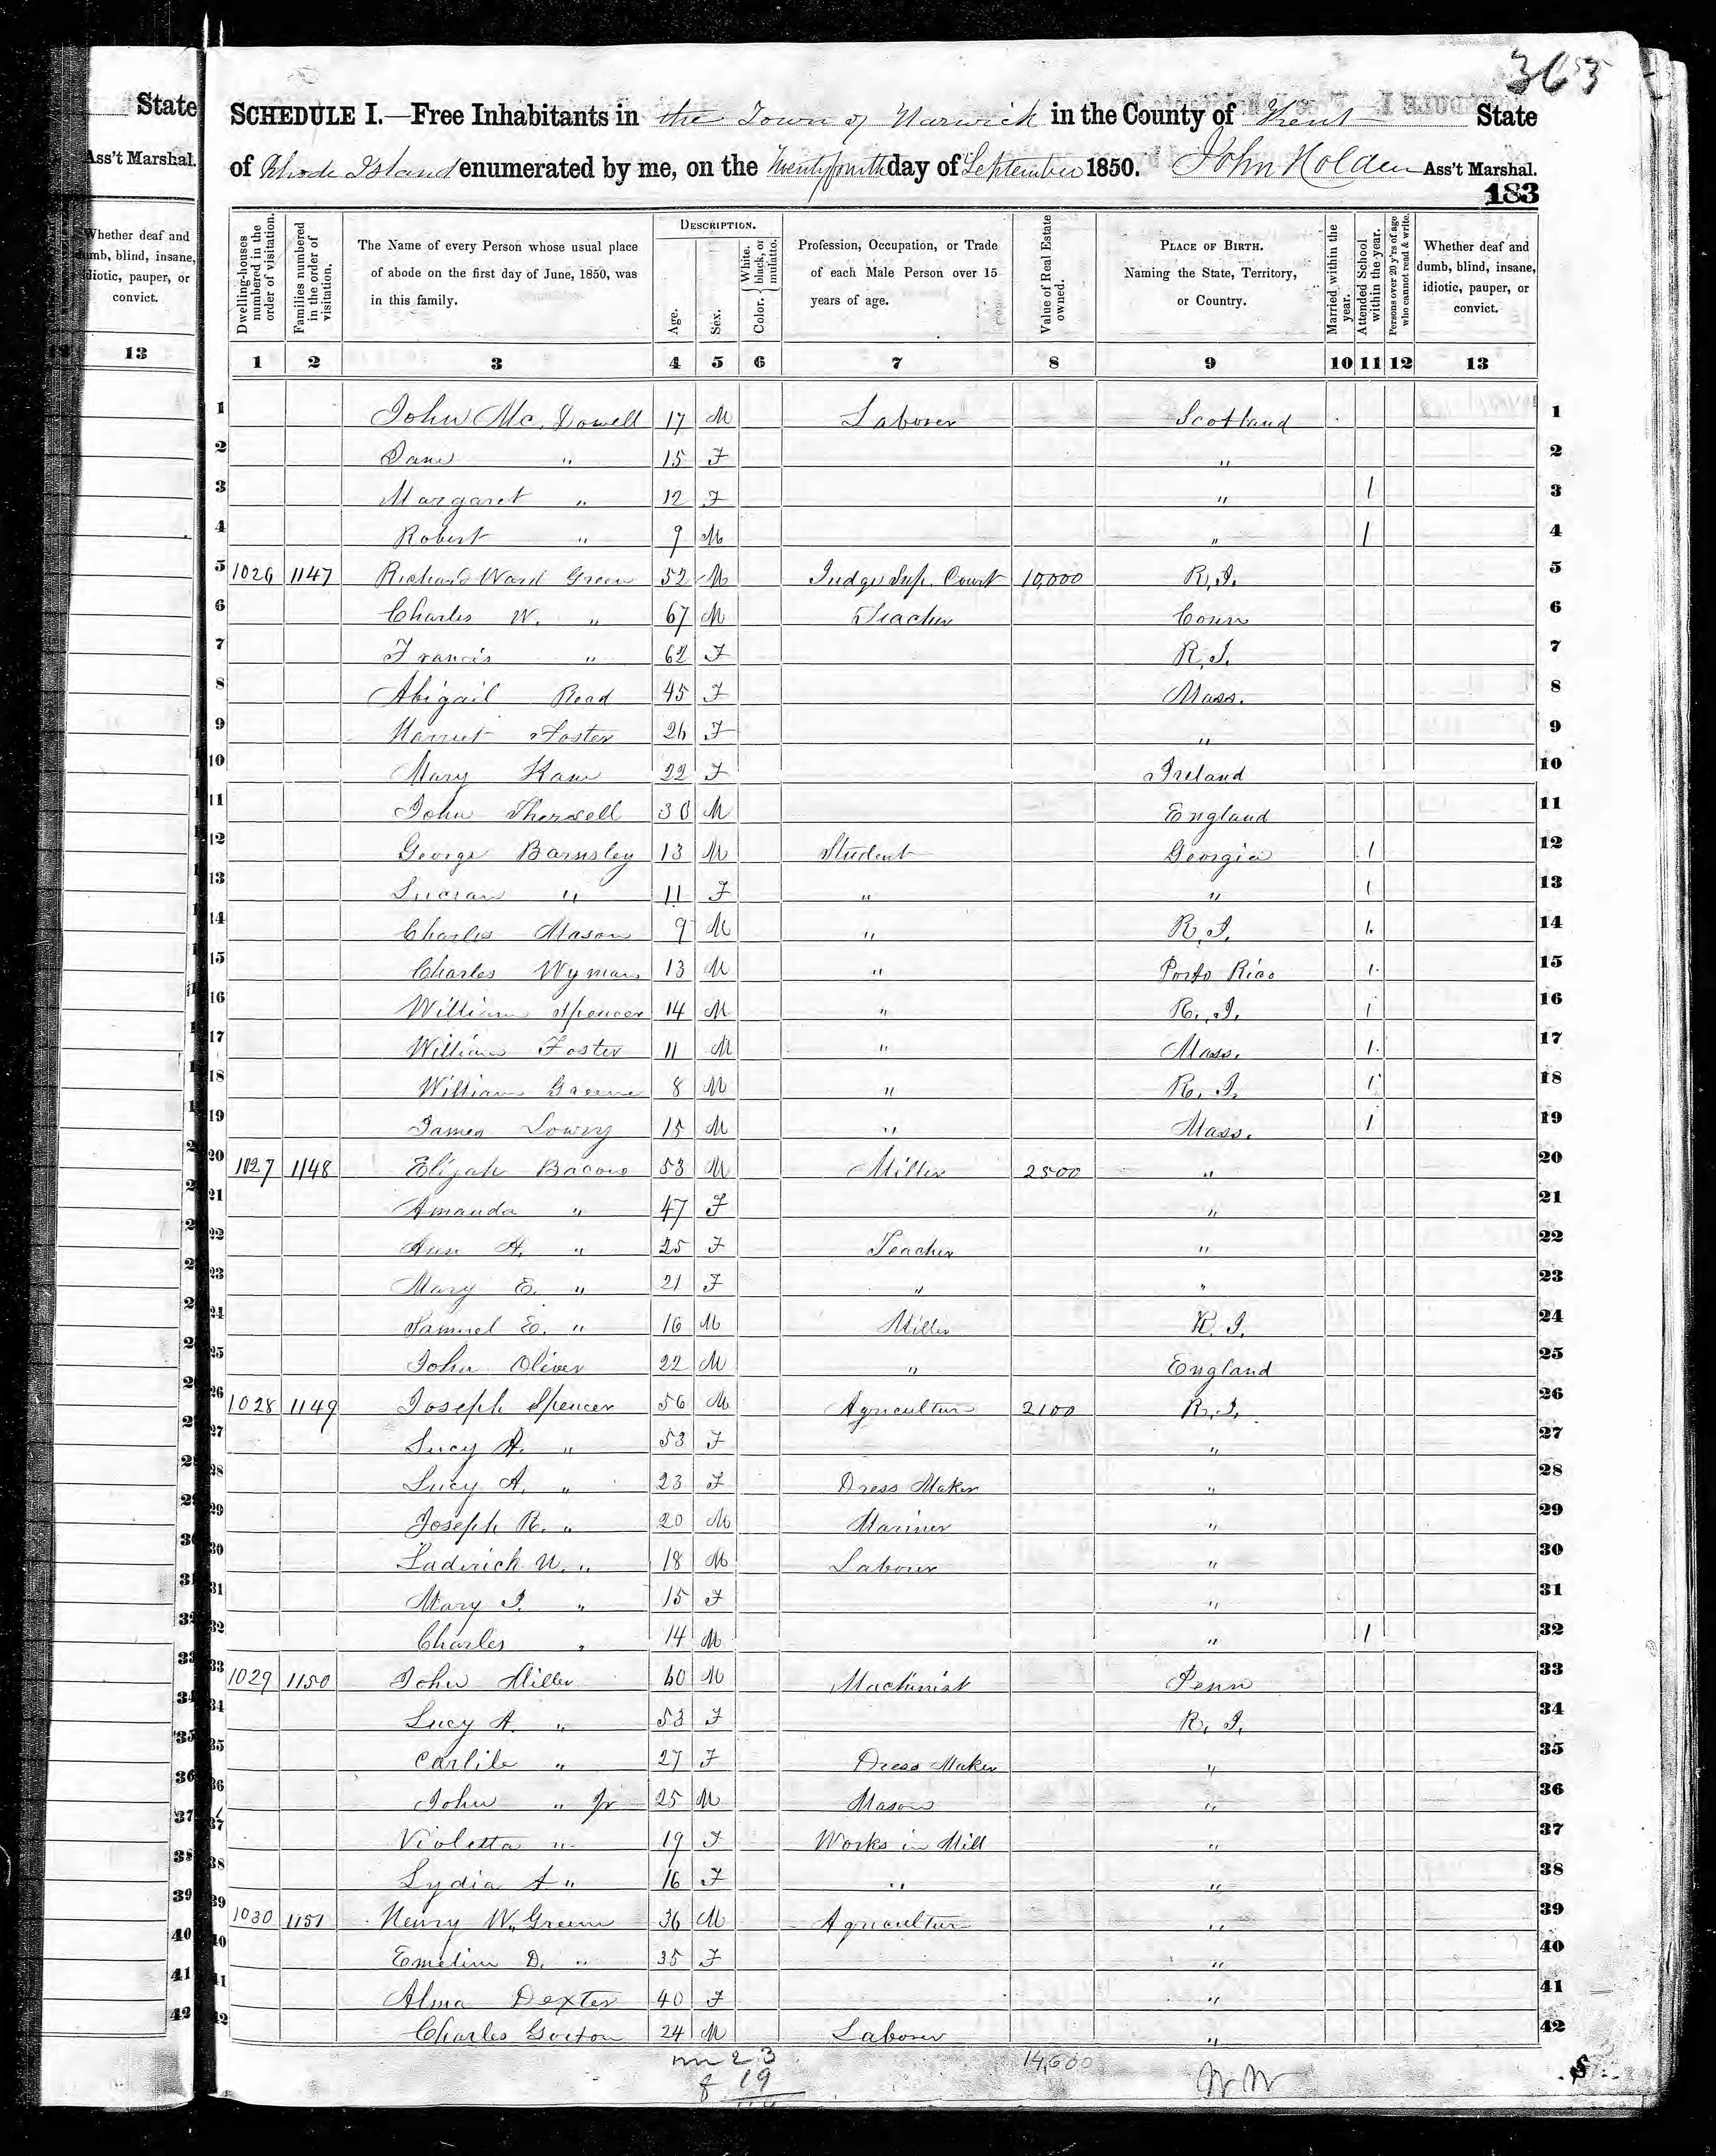 363
State
SCHEDULE I.—Free Inhabitants in the Town of Warwick in the County of Kent State
Ass't Marshal.
of Rhode Island enumerated by me, on the Twenty fourth day of September 1850. John Holden Ass't Marshal.
183
Whether deaf and dumb, blind, insane, idiotic, pauper, or convict.
13
Dwelling-houses numbered in the order of visitation.
Families numbered in the order of visitation.
The Name of every Person whose usual place of abode on the first day of June, 1850, was in this family.
DESCRIPTION.
Age.
Sex.
Color. { White, black, or mulatto.
Profession, Occupation, or Trade of each Male Person over 15 years of age.
Value of Real Estate owned.
PLACE OF BIRTH. Naming the State, Territory, or Country.
Married within the year.
Attended School within the year.
Persons over 20 y'rs of age who cannot read & write.
Whether deaf and dumb, blind, insane, idiotic, pauper, or convict.
1 2 3 4 5 6 7 8 9 10 11 12 13
1 John Mc. Dowell 17 M Laborer Scotland 1
2 Jane " 15 F " 2
3 Margaret " 12 F " 1 3
4 Robert " 9 M " 1 4
5 1026 1147 Richard Ward Green 52 M Judge Sup. Court 10,000 R.I. 5
6 Charles W. " 67 M Teacher Conn 6
7 Francis " 62 F R.I. 7
8 Abigail Read 45 F Mass. 8
9 Harriet Foster 26 F " 9
10 Mary Kane 22 F Ireland 10
11 John 30 M England 11
12 George Barnsley 13 M Student Georgia 1 12
13 Lucian " 11 F " " 1 13
14 Charles Mason 9 M " R.I. 1 14
15 Charles Wyman 13 M " Porto Rico 1 15
16 William Spencer 14 M " R.I. 1 16
17 William Foster 11 M " Mass. 1 17
18 William Greene 8 M " R.I. 1 18
19 James Lowry 15 M " Mass. 1 19
20 1127 1148 Elijah Bacon 53 M Miller 2500 " 20
21 Amanda " 47 F " 21
22 Ann A. " 25 F Teacher " 22
23 Mary E. " 21 F " " 23
24 Samuel E. " 16 M Miller R.I. 24
25 John Oliver 22 M " England 25
26 1028 1149 Joseph Spencer 56 M Agriculture 2100 R.I. 26
27 Lucy A. " 53 F " 27
28 Lucy A. " 23 F Dress Maker " 28
29 Joseph R. " 20 M Mariner " 29
30 W. " 18 M Laborer " 30
31 Mary J. " 15 F " 31
32 Charles " 14 M " 1 32
33 1029 1150 John Miller 60 M Machinist Penn 33
34 Lucy A. " 53 F R.I. 34
35 Carlile " 27 F Dress Maker " 35
36 John " Jr 25 M Mason " 36
37 Violetta " 19 F Works in Mill " 37
38 Lydia A " 16 F " " 38
39 1030 1151 Henry W. Greene 36 M Agriculture " 39
40 Emeline D. " 35 F " 40
41 Alma Dexter 40 F " 41
42 Charles Gorton 24 M Laborer " 42
m 23 14,600
f 19